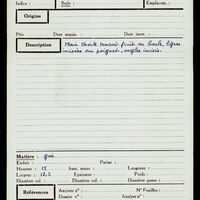 Indice : Scale : Emplacem. :
Origine
Prix Date acquis. : Date inscr. :
Description
Main droite tenant fruit ou boule, lignes
incisées au poignet, ongles incisés.
Matière : grès
Enduit : Patine :
Hauteur : 15 haut. tenon : Longueur :
Largeur : 12,5 Epaisseur : Poids :
Diamètre col. : Diamètre :
Références
Anciens n° : N° Fouilles :
Dossier n° : Analyse n° :